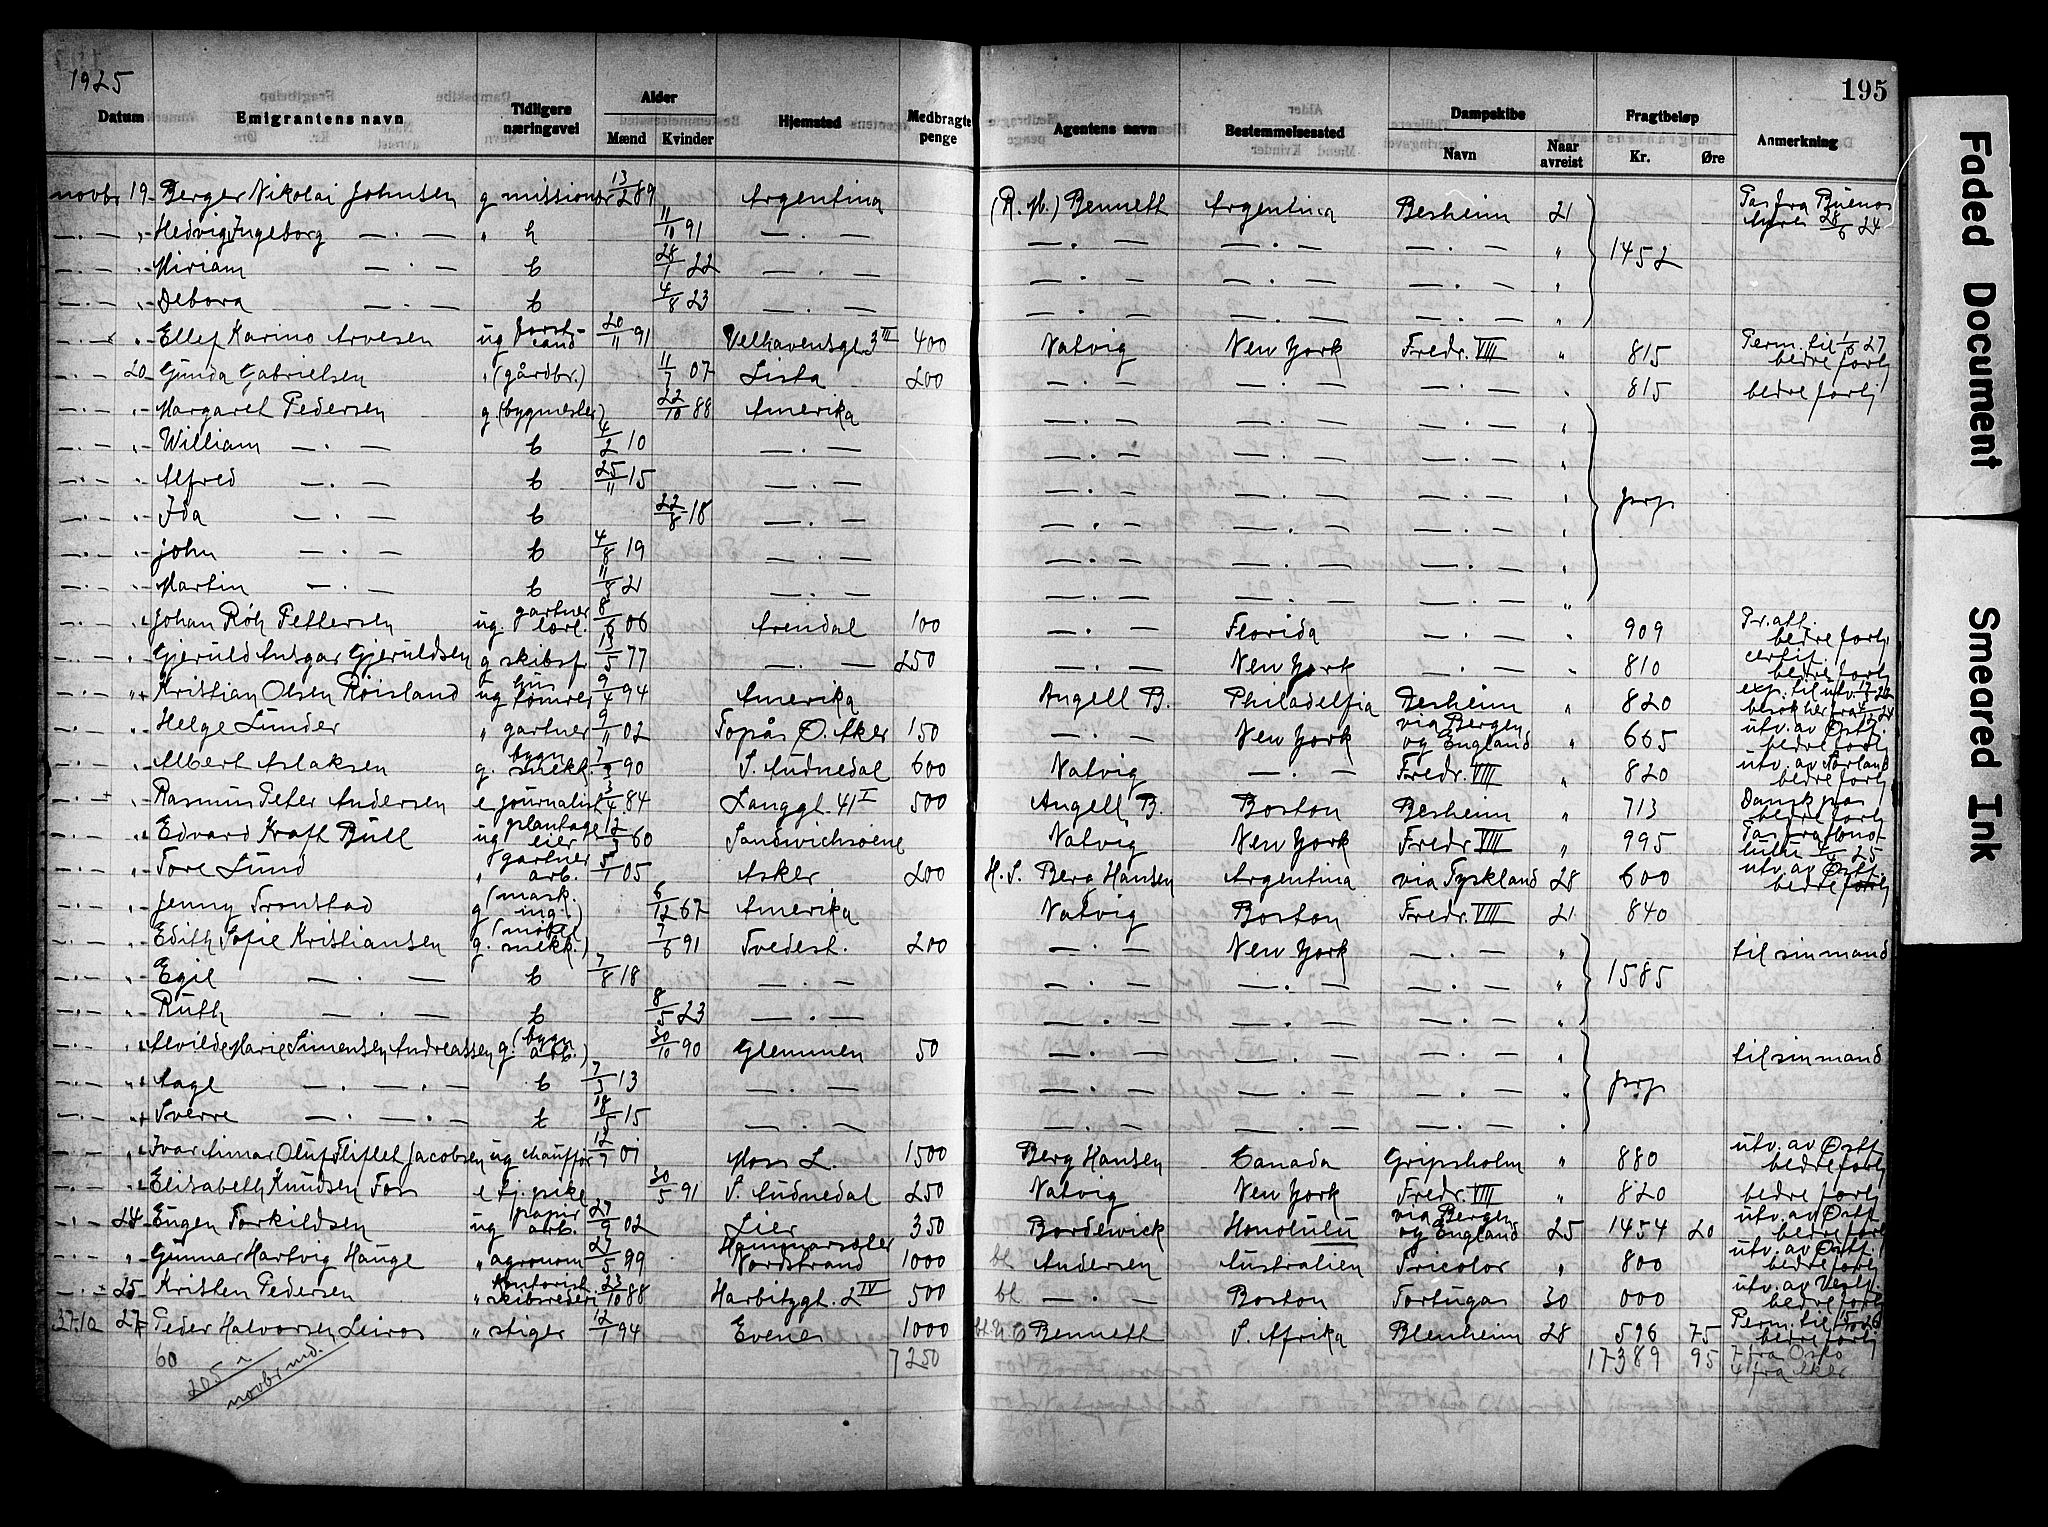 1925
195
Datum Emigrantens navn Tidligere næringsvei Alder Mænd Kvinder Hjemsted Medbragte penge Agentens navn Bestemmelsessted Dampskibe Navn Naar avreist Fragtbeløp Kr. Øre Anmerkning
novbr 19 Berger Nikolai Johnsen g missionær 13/2 89 Argentina (R. M.) Bennett Argentina Besheim 21 Pas fra Buenos Ayres 28/6 24
— . — „ Hedvig Ingeborg — . — „ h 11/10 91 — . — — . — — . — — . — „ 1452
— . — „ Miriam — . — b 28/1 22 — . — — . — — . — — . — „
— . — „ Debora — . — b 4/8 23 — . — — . — — . — — . — „
— . — „ Ellef Karino Arvesen ug forst-kand 20/11 91 Velhavensgt. 3 III 400 Natvig New York Fredr. VIII „ 815 Perm. til 1/6 27 bedre fortj
— . — 20 Gunda Gabrielsen „ (gårdbr.) 11/7 07 Lista 200 — . — — . — — . — „ 815 bedre fortj
— . — „ Margaret Pedersen g (bygmester) 22/10 88 Amerika — . — — . — — . — „
— . — „ William — . — b 4/2 10 — . — — . — — . — — . — „
— . — „ Alfred — . — b 25/11 15 — . — — . — — . — — . — „ prp
— . — „ Ida — . — b 22/8 18 — . — — . — — . — — . — „
— . — „ John — . — b 4/8 19 — . — — . — — . — — . — „
— . — „ Martin — . — b 11/8 21 — . — — . — — . — — . — „
— . — „ Johan Röh Pettersen ug. gartner lærl. 8/6 06 Arendal 100 — . — Florida — . — „ 909 Pr. att. bedre fortj
— . — „ Gjeruld Ansgar Gjeruldsen g skibsf. 13/5 77 — . — 250 — . — New York — . — „ 810 certif. bedre fortj
— . — „ Kristian Olsen Røisland ug hus tømrer 9/4 94 Amerika Angell B. Philadelfia Besheim „ 820 exp. til utv. besøk her fra
— . — „ Helge Lunder „ gartner 9/11 02 Topås Ø. Aker 150 — . — New York via Bergen og England „ 665 utv. av Østf. bedre fortj
— . — „ Albert Aslaksen g. bygn snekk. 7/3 90 S. Audnedal 600 Natvig — . — Fredr. VIII „ 820 utv. av Sørland bedre fortj
— . — „ Rasmus Peter Andersen e journalist 3/4 84 Langgt. 41 I 500 Angell B. Boston Besheim „ 713 Dansk pas bedre fortj
— . — „ Edvard Kraft Bull ug plantage eier 12/3 60 Sandwichsøene Natvig New York Fredr. VIII „ 995 Pas fra Hono-lulu 4/4 25
— . — „ Tore Lund „ gartner arb. 5/1 05 Asker 200 H. S. Berg Hansen Argentina via Tyskland 28 600 utv. av Østf. bedre fortj
— . — „ Jenny Tronstad g (mask. ing.) 6/12 67 Amerika Natvig Boston Fredr. VIII 21 840
— . — „ Edith Sofie Kristiansen g. (møbel snekk.) 7/6 91 Tvedest. 200 — . — New York — . — „ til sin mand
— . — „ Egil — . — b 7/8 18 — . — — . — — . — — . — „ 1585
— . — „ Ruth — . — b 8/5 23 — . — — . — — . — — . — „
— . — „ Alvilde Marie Simensen Andreassen g. (bygn arb.) 30/10 90 Glemmen 50 — . — — . — — . — „ til sin mand
— . — „ Aage — . — . — b 7/3 13 — . — — . — — . — — . — „ prp
— . — „ Sverre — . — . — b 18/5 15 — . — — . — — . — — . — „
— . — „ Ivar Aimar Oluf Fliflet Jacobsen ug chauffør 12/7 01 Moss L. 1500 Berg Hansen Canada Gripsholm „ 880 utv. av Østf. bedre fortj
— . — „ Elisabeth Knudsen Foss e tj. pike 30/5 91 S. Audnedal 250 Natvig New York Fredr. VIII „ 820 bedre fortj
— . — 24 Eugen Torkildsen ug papir arb. 27/9 02 Lier 350 Bordewick Honolulu via Bergen og England 25 1454 20 utv. av Østf. bedre fortj
— . — „ Gunnar Hartvig Hauge „ agronom 27/5 99 Nordstrand 1000 bl Andersen Australien Tricolor „ 800 utv. av Østf. bedre fortj
— . — 25 Kristen Pedersen „ kontorist skibsrederi 23/10 88 Harbitzgt. 2 IV 500 bl — . — Boston Tortugas 30 000 utv. av Vestl. bedre fortj
27 Peder Halvorsen Leiros „ stiger 12/1 94 Evenes 1000 Bennett S. Afrika Blenheim 28 596 75 Perm. til bedre fortj
60 7250 17389 95 7 fra Oslo
205 novbr md. 4 fra Aker
Faded Document
Smeared Ink